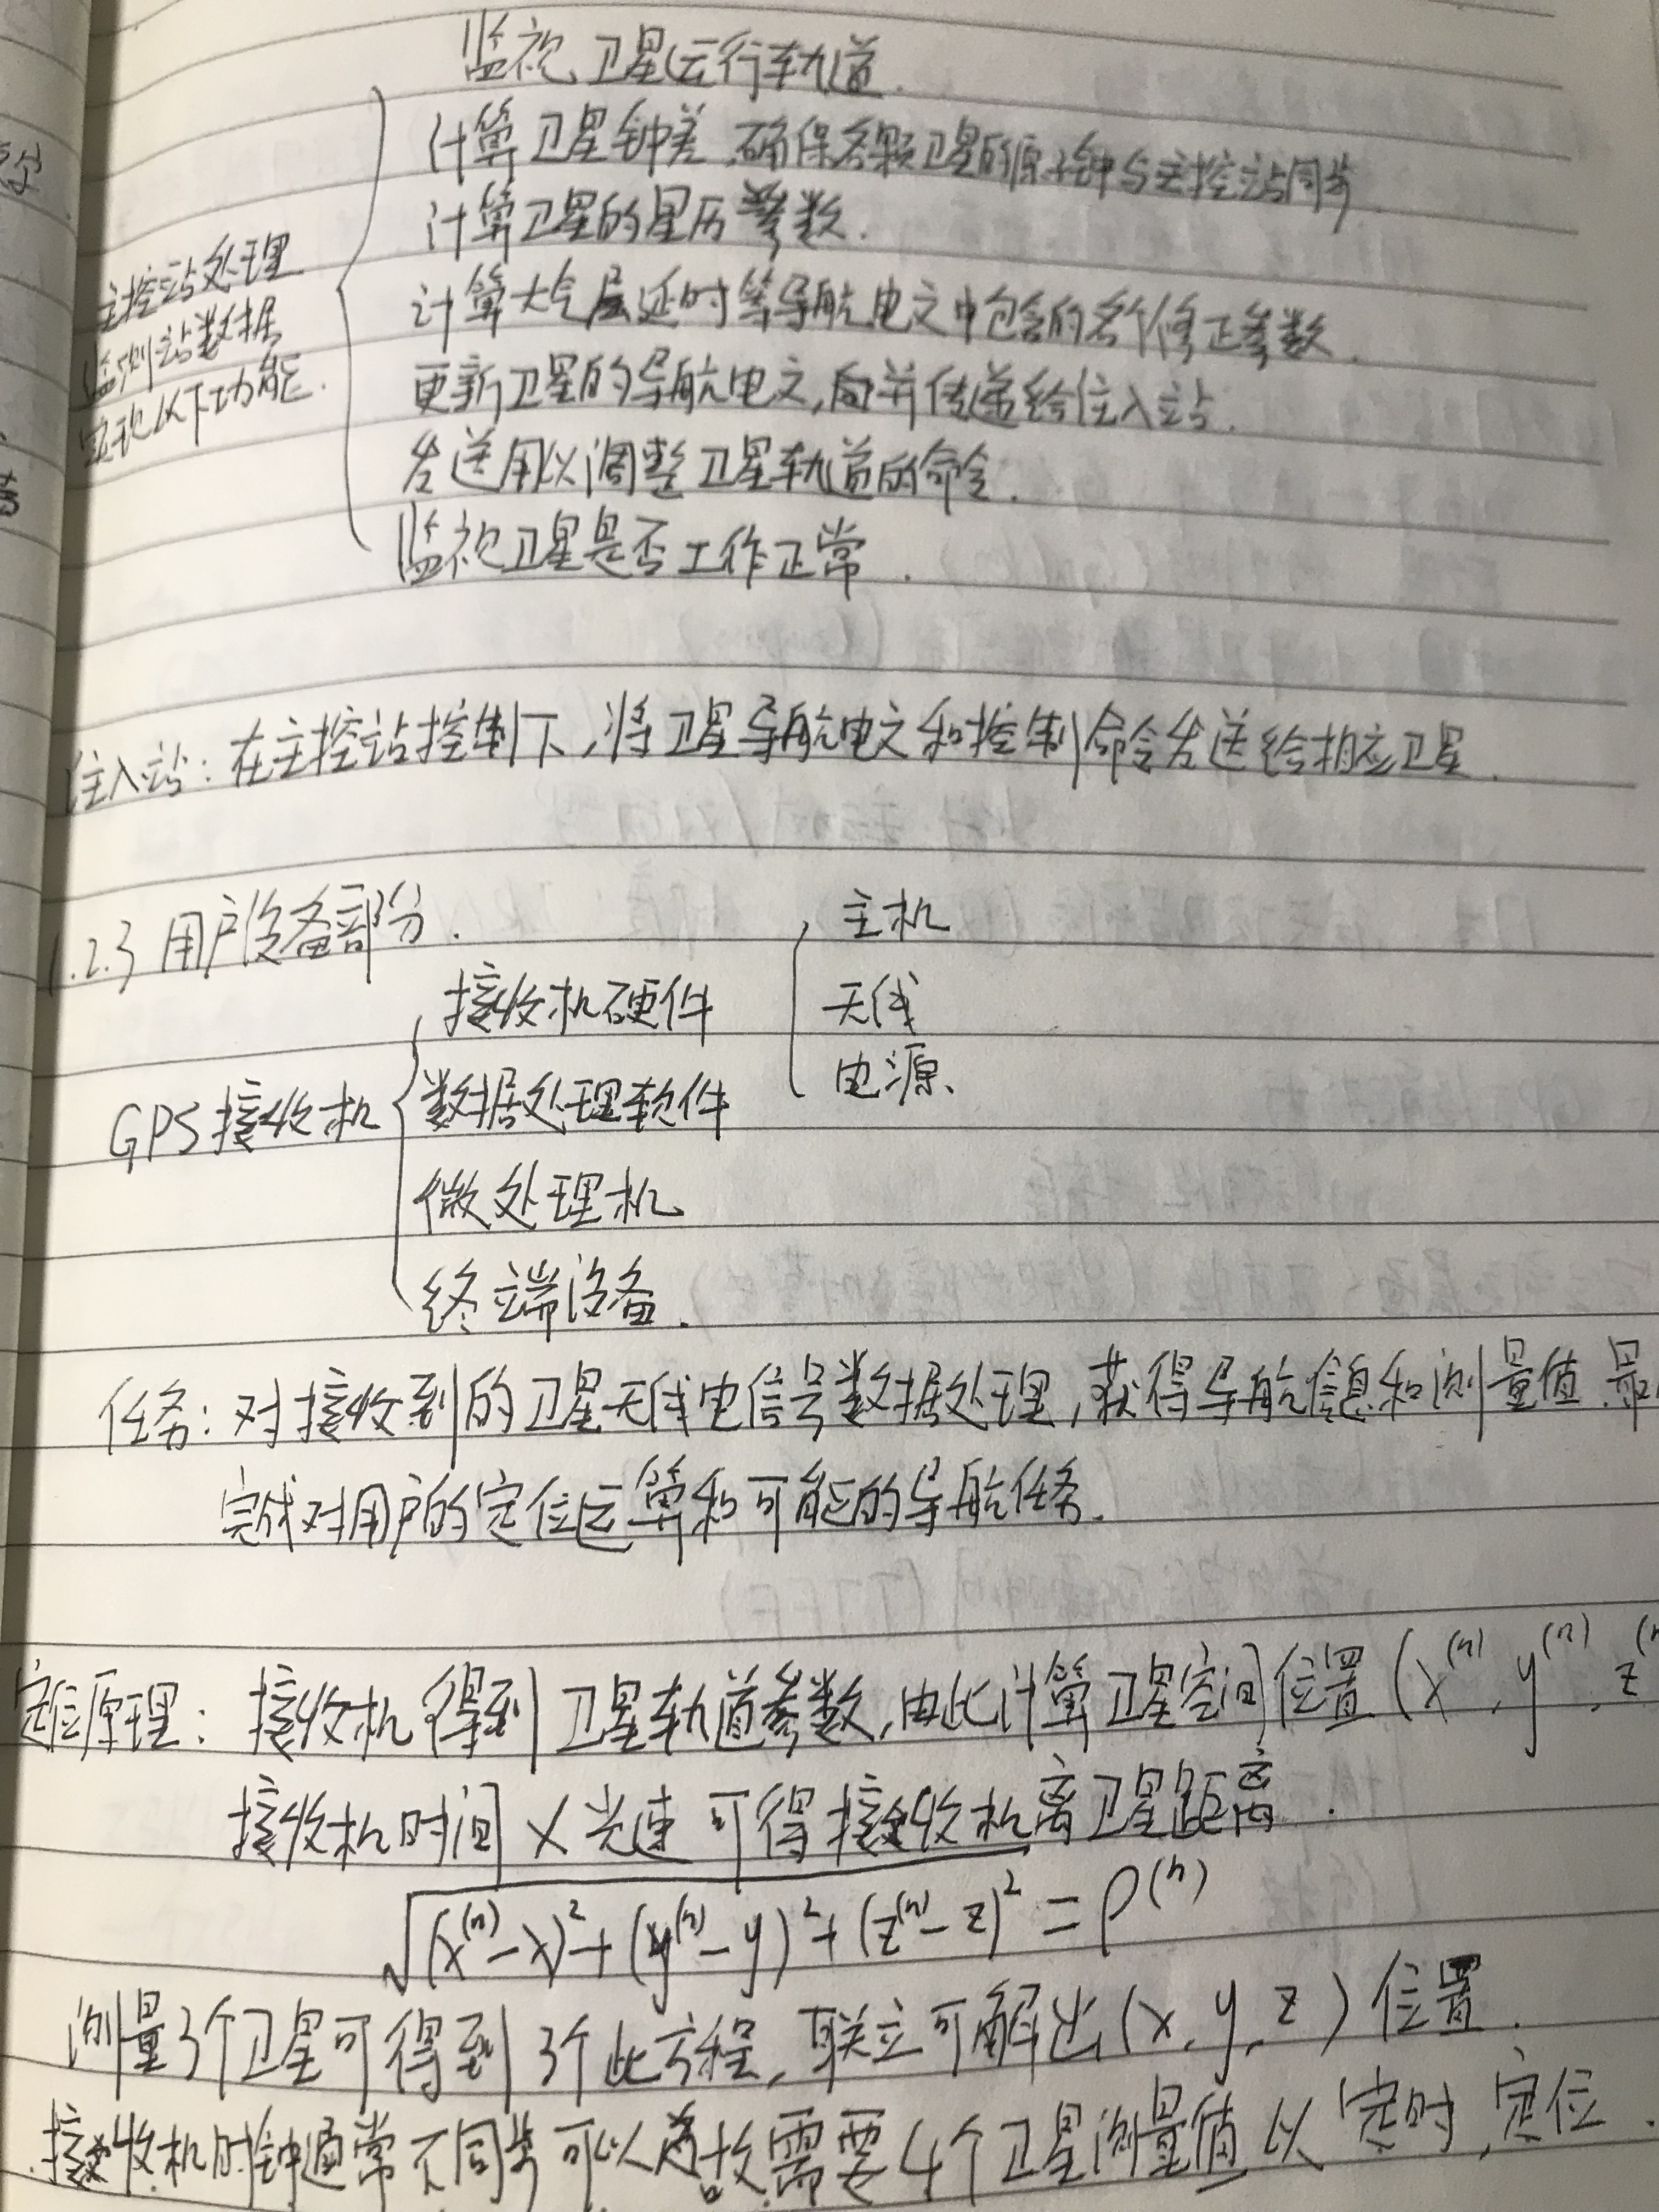 监视卫星运行轨道.
计算卫星钟差,确保各颗卫星的原子钟与主控站同步
计算卫星的星历参数.
主控站处理
监测站数据
实现以下功能.
计算大气层延时等导航电文中包含的各个修正参数.
更新卫星的导航电文,向并传递给注入站.
发送用以调整卫星轨道的命令.
监视卫星是否工作正常.
注入站:在主控站控制下,将卫星导航电文和控制命令发送给相应卫星.
1.2.3 用户设备部分.
GPS接收机
接收机硬件
主机
天线
电源、
数据处理软件
微处理机
终端设备.
任务:对接收到的卫星无线电信号数据处理,获得导航信息和测量值.最
完成对用户的定位运算和可能的导航任务.
定位原理:接收机得到卫星轨道参数,由此计算卫星空间位置(x^(n), y^(n), z^(n
接收机时间×光速可得接收机离卫星距离.
√(x^(n)-x)²+(y^(n)-y)²+(z^(n)-z)² = ρ^(n)
测量3个卫星可得到3个此方程,联立可解出(x,y,z)位置.
接收机时钟通常不同步可以为故需要4个卫星测量值以定时,定位.